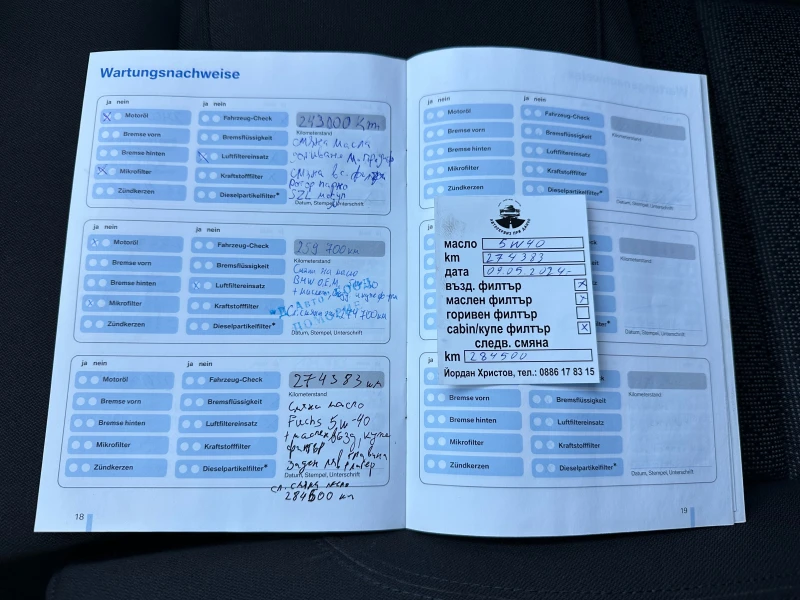 Wartungsnachweise
ja nein
ja nein
Motoröl
Fahrzeug-Check
243000 Km
Bremse vorn
Bremsflüssigkeit
Kilometerstand
Bremse hinten
Luftfiltereinsatz
смяна масла
Mikrofilter
Kraftstofffilter
Zündkerzen
Dieselpartikelfilter*
Datum, Stempel, Unterschrift
ja nein
ja nein
Motoröl
Fahrzeug-Check
259 700 км
Bremse vorn
Bremsflüssigkeit
Kilometerstand
Bremse hinten
Luftfiltereinsatz
Смяна на масло
Mikrofilter
Kraftstofffilter
Zündkerzen
Dieselpartikelfilter*
274700 км
Datum, Stempel, Unterschrift
ja nein
ja nein
Motoröl
Fahrzeug-Check
274383 км
Bremse vorn
Bremsflüssigkeit
Kilometerstand
Bremse hinten
Luftfiltereinsatz
Смяна масло
Fuchs 5w-40
Mikrofilter
Kraftstofffilter
филтър
Zündkerzen
Dieselpartikelfilter*
Datum, Stempel, Unterschrift
сл. смяна масло
284500 км
18
ja nein
ja nein
Motoröl
Fahrzeug-Check
Bremse vorn
Bremsflüssigkeit
Kilometerstand
Bremse hinten
Luftfiltereinsatz
Mikrofilter
Kraftstofffilter
Zündkerzen
Dieselpartikelfilter*
Datum, Stempel, Unterschrift
масло 5w40
km 274383
дата 09.05.2024-
възд. филтър
маслен филтър
горивен филтър
cabin/купе филтър
следв. смяна
km 284500
Йордан Христов, тел.: 0886 17 83 15
Kilometerstand
Datum, Stempel, Unterschrift
Bremse vorn
Bremsflüssigkeit
Kilometerstand
Bremse hinten
Luftfiltereinsatz
Mikrofilter
Kraftstofffilter
Zündkerzen
Dieselpartikelfilter*
Datum, Stempel, Unterschrift
19